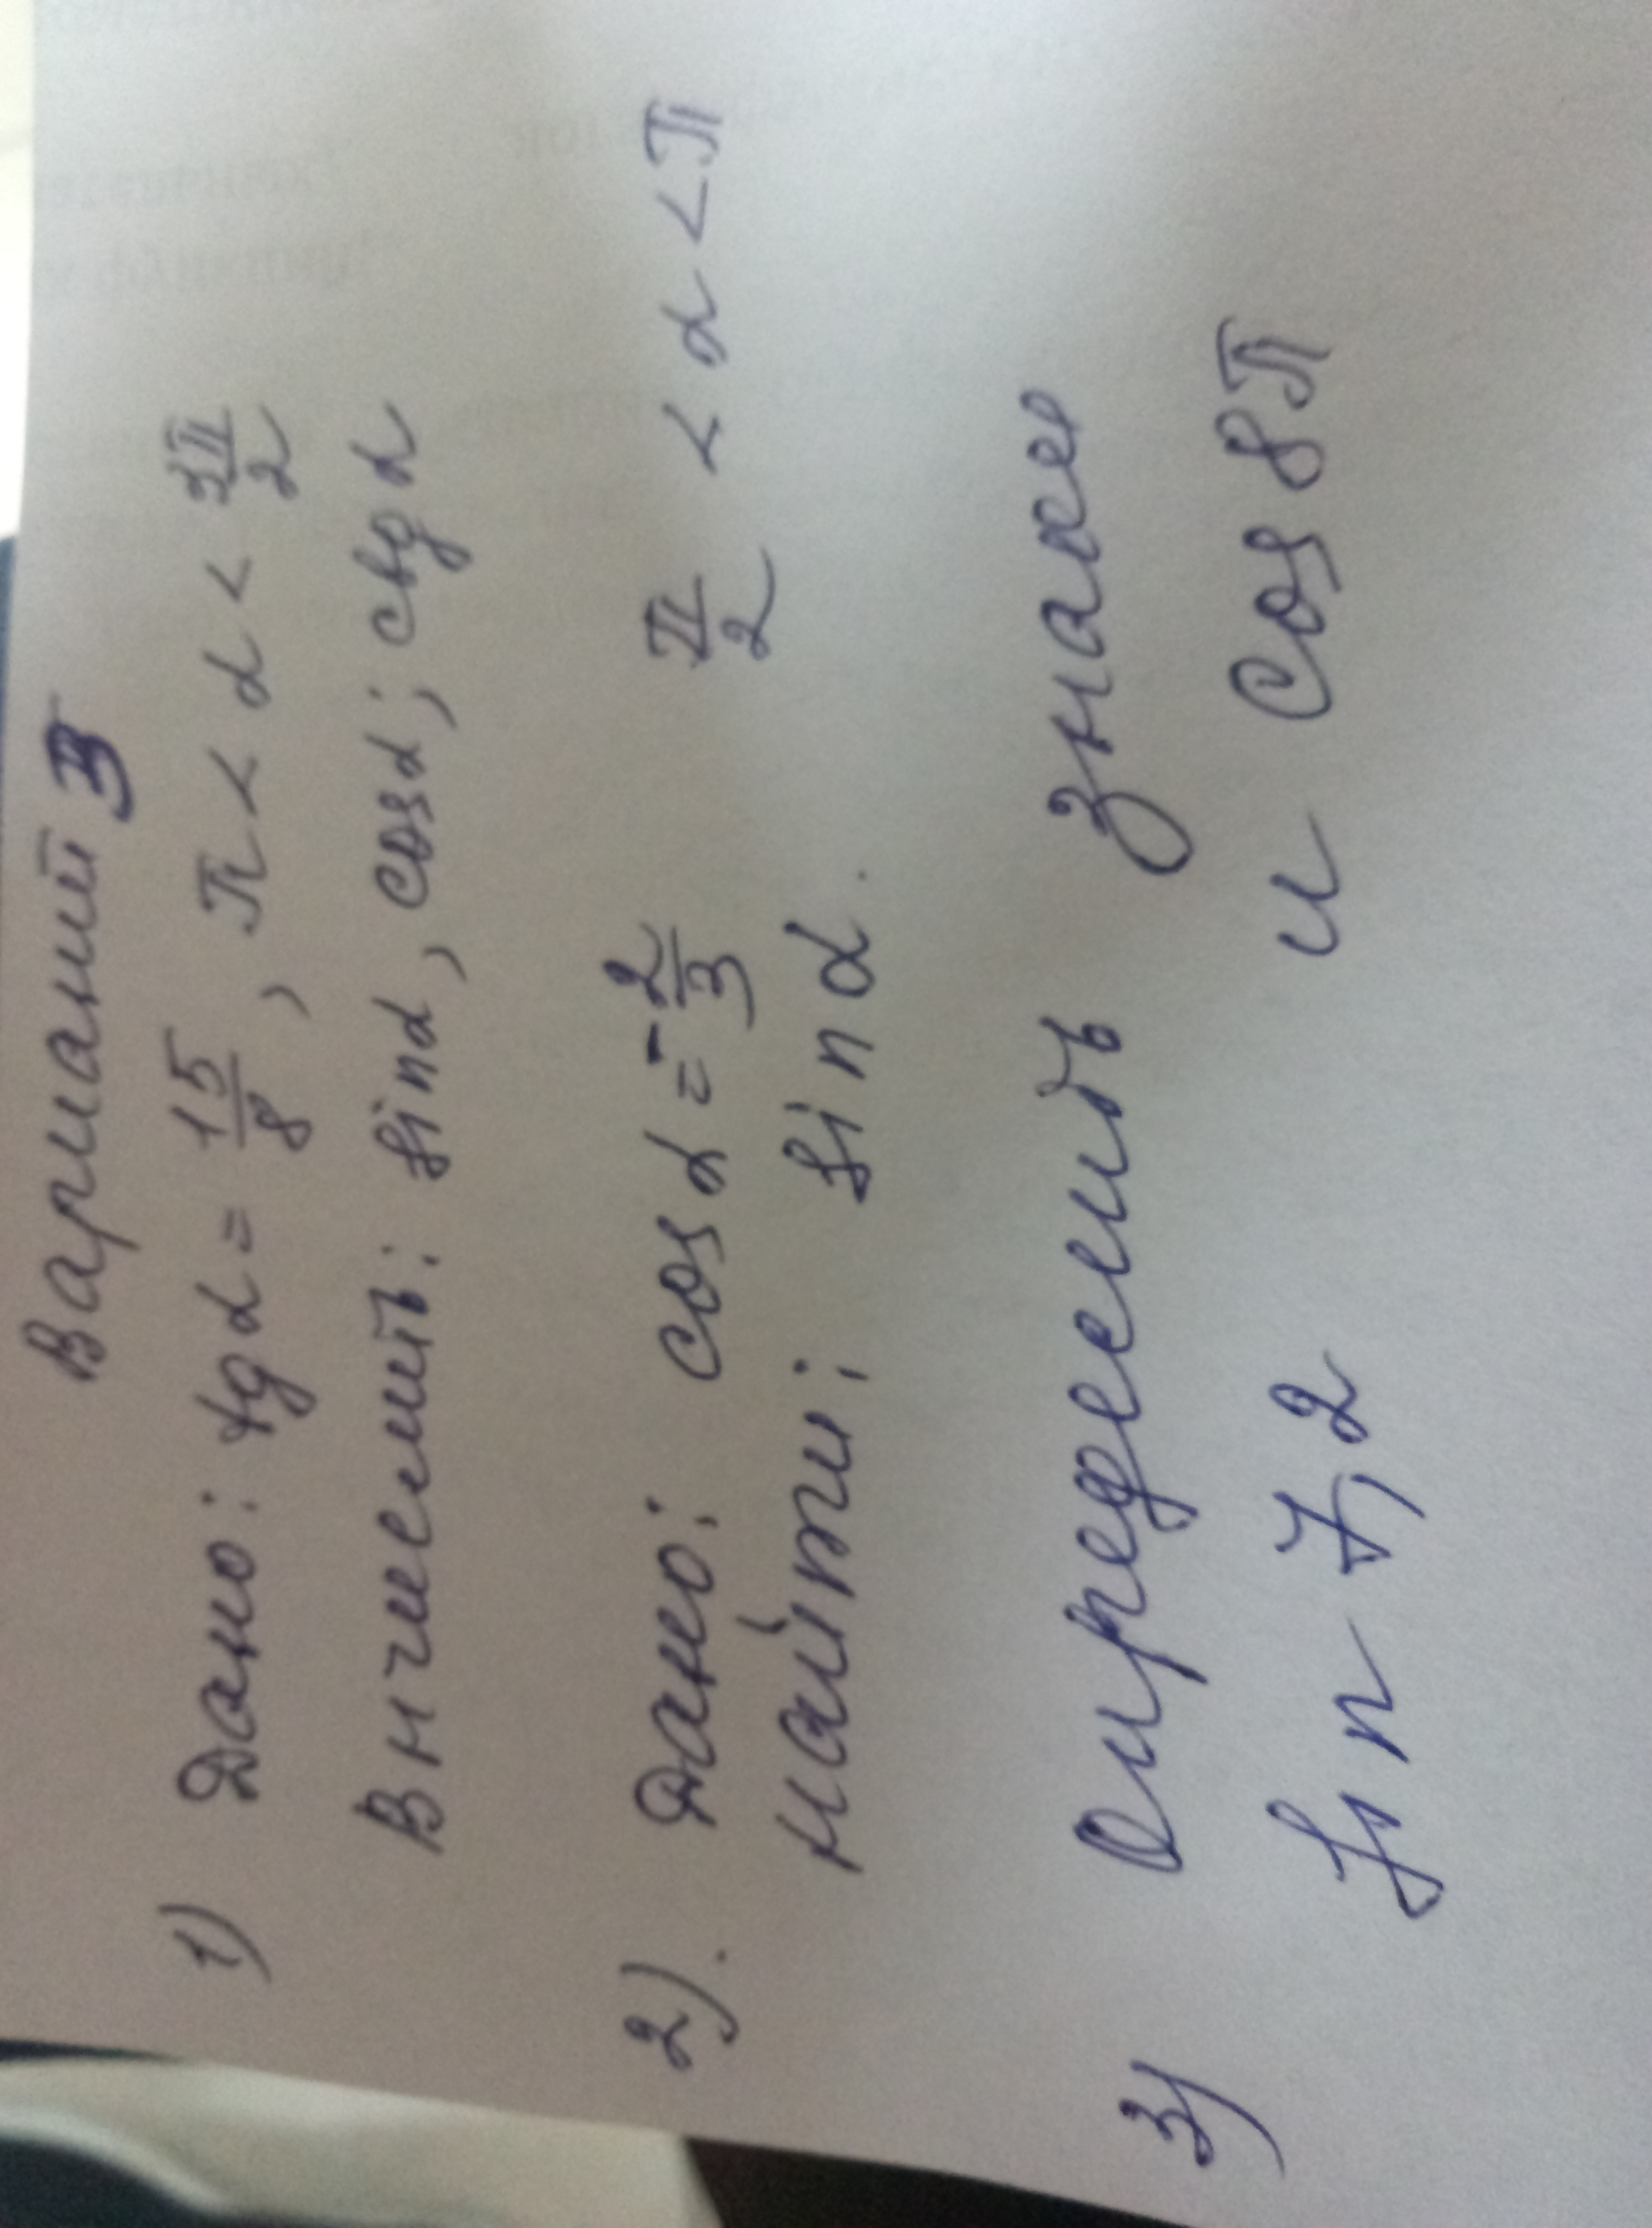 Вариант 3
1) Дано: tg α = 15/8, π < α < 3π/2
Вычислить: sin α, cos α; ctg α
2). Дано: cos α = -2/3 π/2 < α < π
найти: sin α.
3) Определить знаки
sin 7,2 и cos 8π